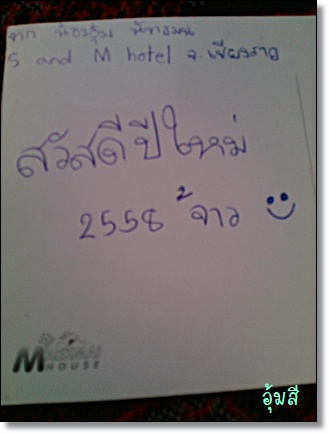 จาก น้องอุ้ม
S and M hotel จ.เชียงราย
สวัสดีปีใหม่
2558 จ้าว
M
HOUSE
อุ้มสี